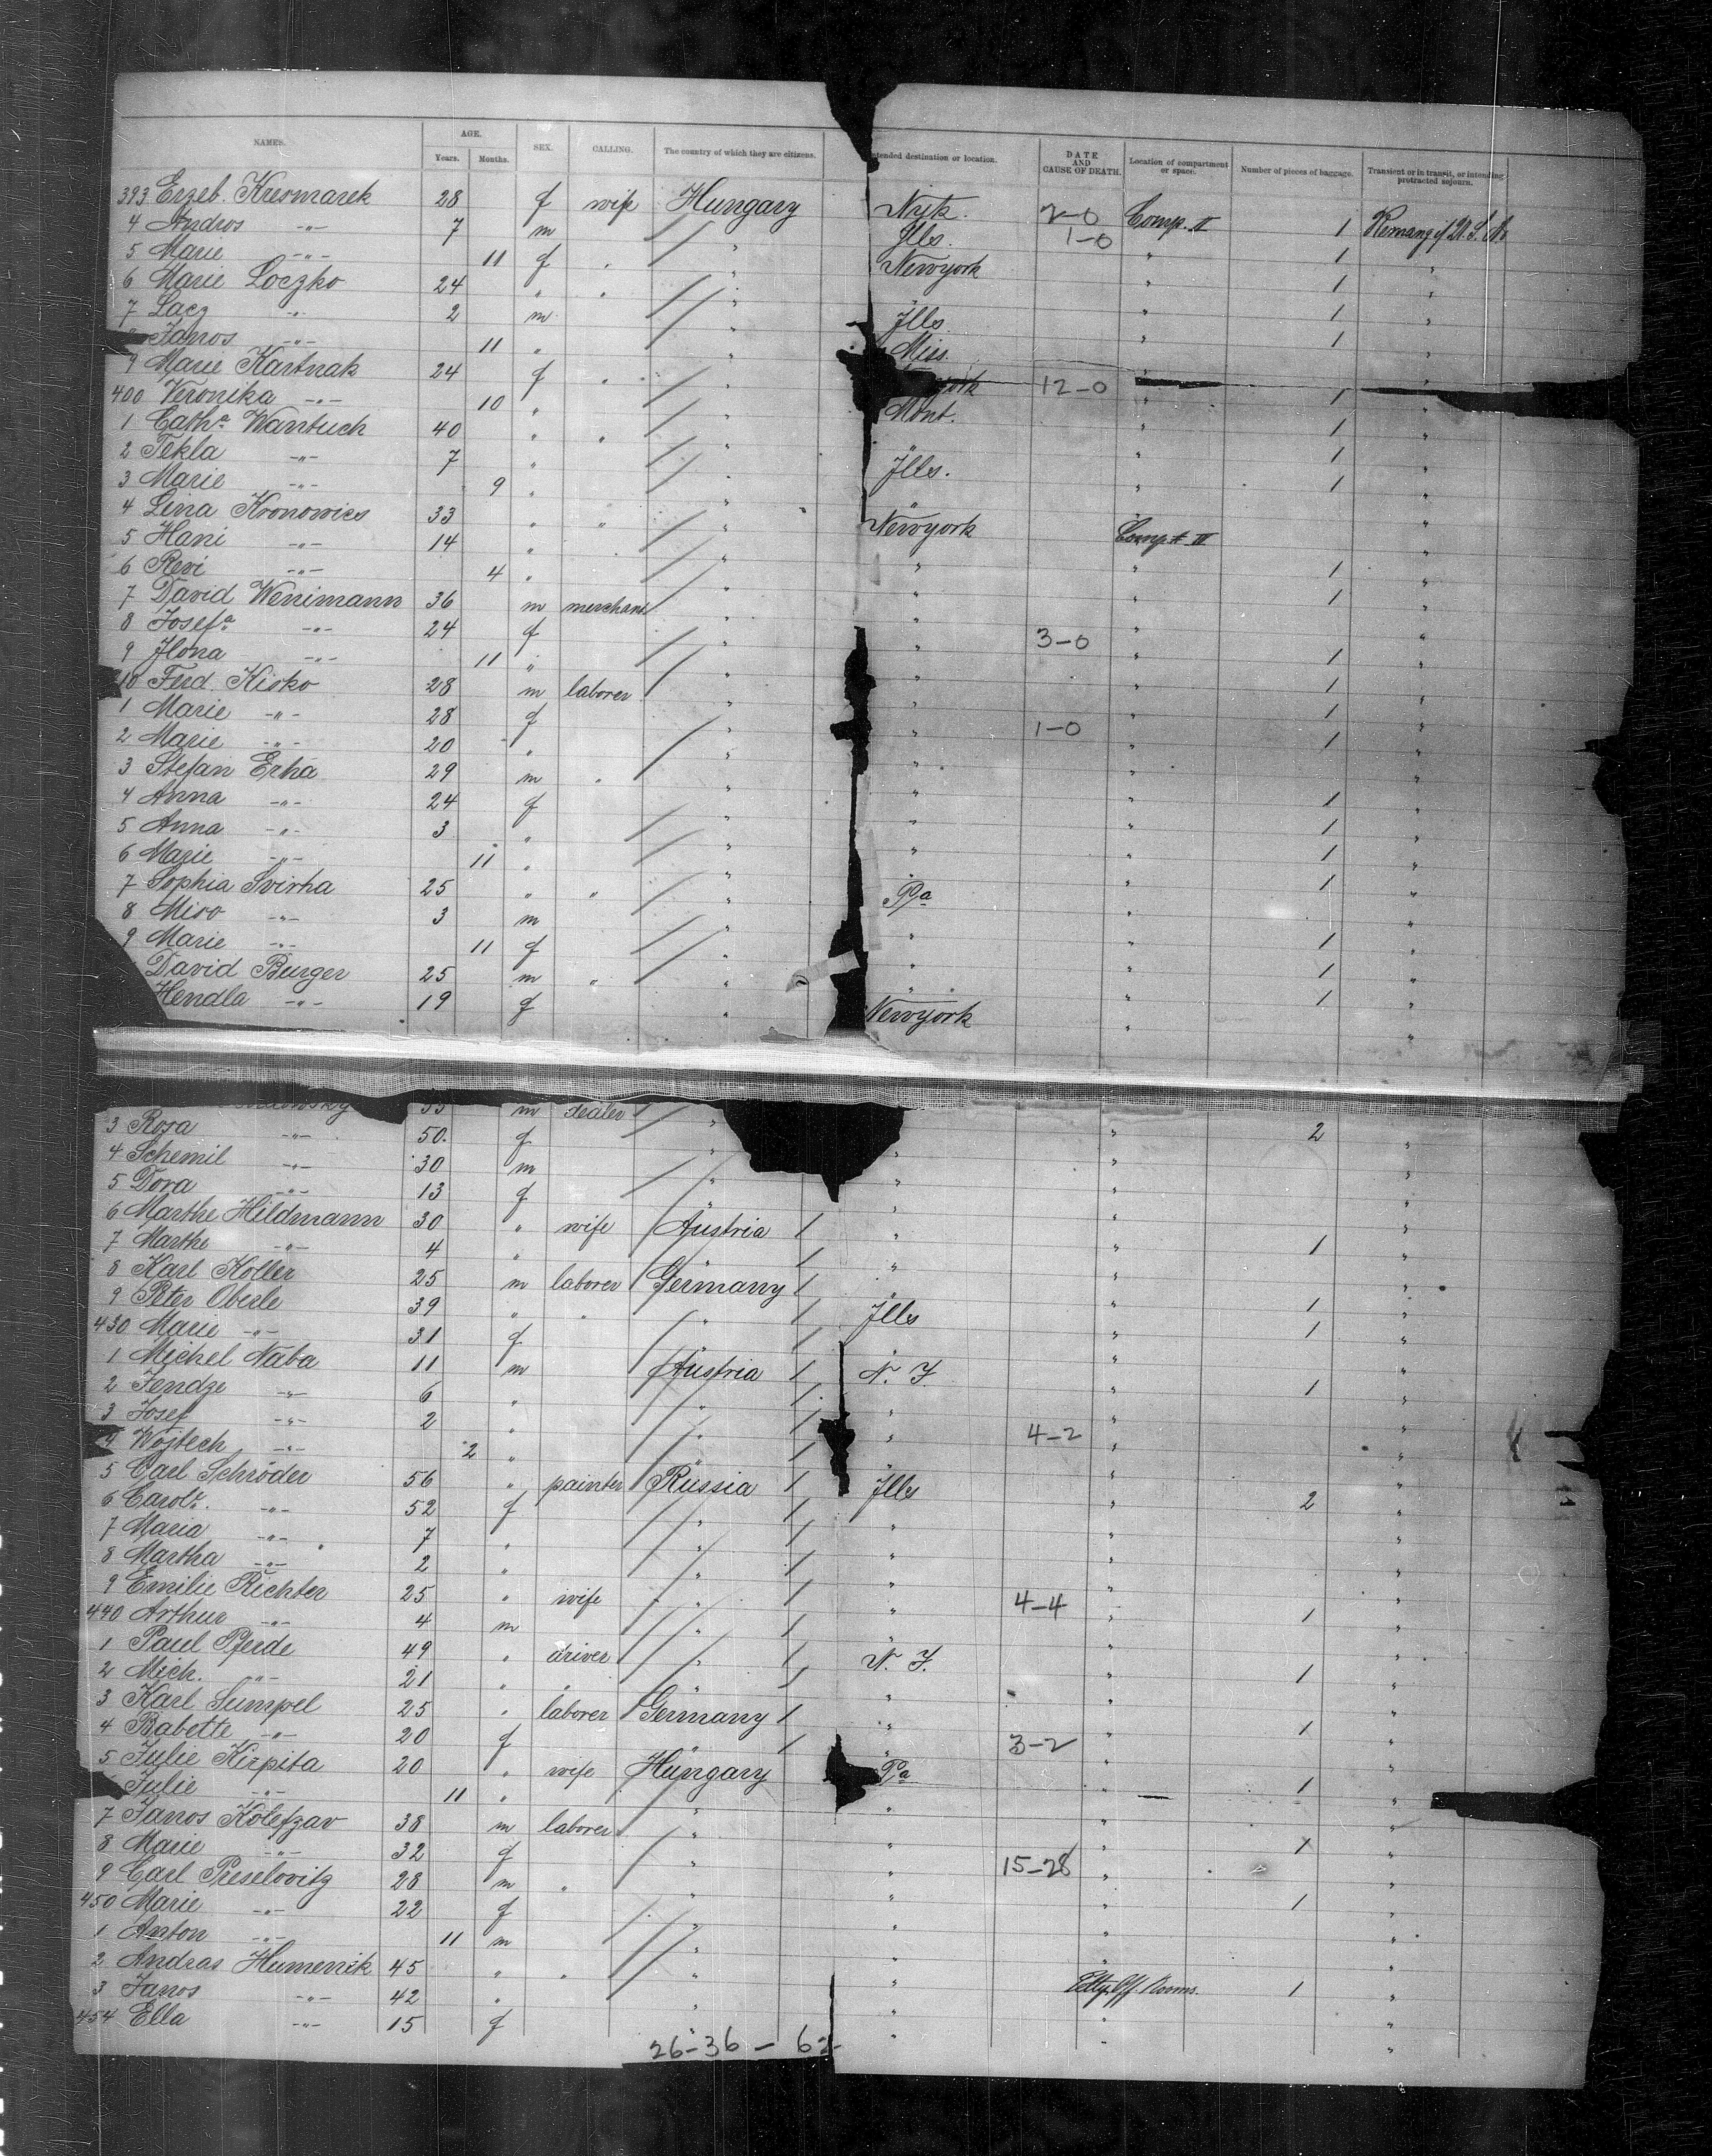 NAMES. AGE. Years. Months. SEX. CALLING. The country of which they are citizens. Intended destination or location. DATE AND CAUSE OF DEATH. Location of compartment or space. Number of pieces of baggage. Transient or in transit, or intending protracted sojourn.
393 Erzeb. Kresmarek 28 f wife Hungary 2-0 Comp. II 1
4 Andros -"- 7 m " Ills. 1-0 1
5 Marie -"- 11 f " " Newyork " 1 "
6 Marie Loczko 24 " " " " 1 "
7 Lacz " 2 m " Ills " 1 "
Janos -"- 11 " " Miss. " 1 "
9 Marie Kartnak 24 f " " 12-0 " "
400 Veronika -"- 10 " " Mont. " 1 "
1 Catha Wantuch 40 " " " " " 1 "
2 Tekla -"- 7 " " Ills. " 1 "
3 Marie -"- 9 " " " " 1 "
4 Lina Kronowics 33 " " " Newyork Compt III "
5 Hani -"- 14 " " " " 1 "
6 Revi -"- 4 " " " " 1 "
7 David Wenimann 36 m merchant " " " "
8 Josefa -"- 24 f " " 3-0 " 1 "
9 Ilona -"- 11 " " " " 1 "
10 Ferd. Kisko 28 m laborer " " " 1 "
1 Marie -"- 28 f " " 1-0 " 1 "
2 Marie -"- 20 " " " " "
3 Stefan Erha 29 m " " " " 1 "
4 Anna -"- 24 f " " " 1 "
5 Anna -"- 3 " " " " 1 "
6 Marie -"- 11 " " " " 1 "
7 Sophia Svirha 25 " " " Pa " "
8 Miso -"- 3 m " " " 1 "
9 Marie -"- 11 f " " " 1 "
David Burger 25 m " " " " 1 "
Hendla -"- 19 f " Newyork " "
m dealer "
3 Rosa -"- 50 f " " " 2 "
4 Schemil -"- 30 m " " " "
5 Dora -"- 13 f " " " "
6 Marthe Hildmann 30 " wife Austria " " 1 "
7 Marthe -"- 4 " " " "
8 Karl Koller 25 m laborer Germany " " 1 "
9 Peter Oberle 39 " " " Ills " 1 "
430 Marie -"- 31 f " " " "
1 Michel Naba 11 m Austria " 1 "
2 Jendze -"- 6 " " " " "
3 Josef -"- 2 " " " 4-2 " "
4 Wojtech -"- 2 " " " "
5 Carl Schröder 56 " painter Russia Ills " 2 "
6 Carole. -"- 52 f " " " "
7 Maria -"- 7 " " " " "
8 Martha -"- 2 " " " " "
9 Emilie Richter 25 " wife " " 4-4 " 1 "
440 Arthur -"- 4 m " " " "
1 Paul Pferde 49 " driver " " 1 "
2 Mich. -"- 21 " " " " " "
3 Karl Sumpel 25 " laborer Germany " " 1 "
4 Babette -"- 20 f " 3-2 " "
5 Julie Kirpita 20 " wife Hungary Pa " 1 "
Julie -"- 11 " " " " "
7 Janos 38 m laborer " " " 1 "
8 Marie -"- 32 f " " 15-28 " "
9 Carl Preselovitz 28 m " " " " 1 "
450 Marie -"- 22 f " " " "
1 Anton -"- 11 m " " " "
2 Andras Humenik 45 " " " " 1 "
3 Janos -"- 42 " " " " "
454 Ella -"- 15 f " " " "
26-36-62